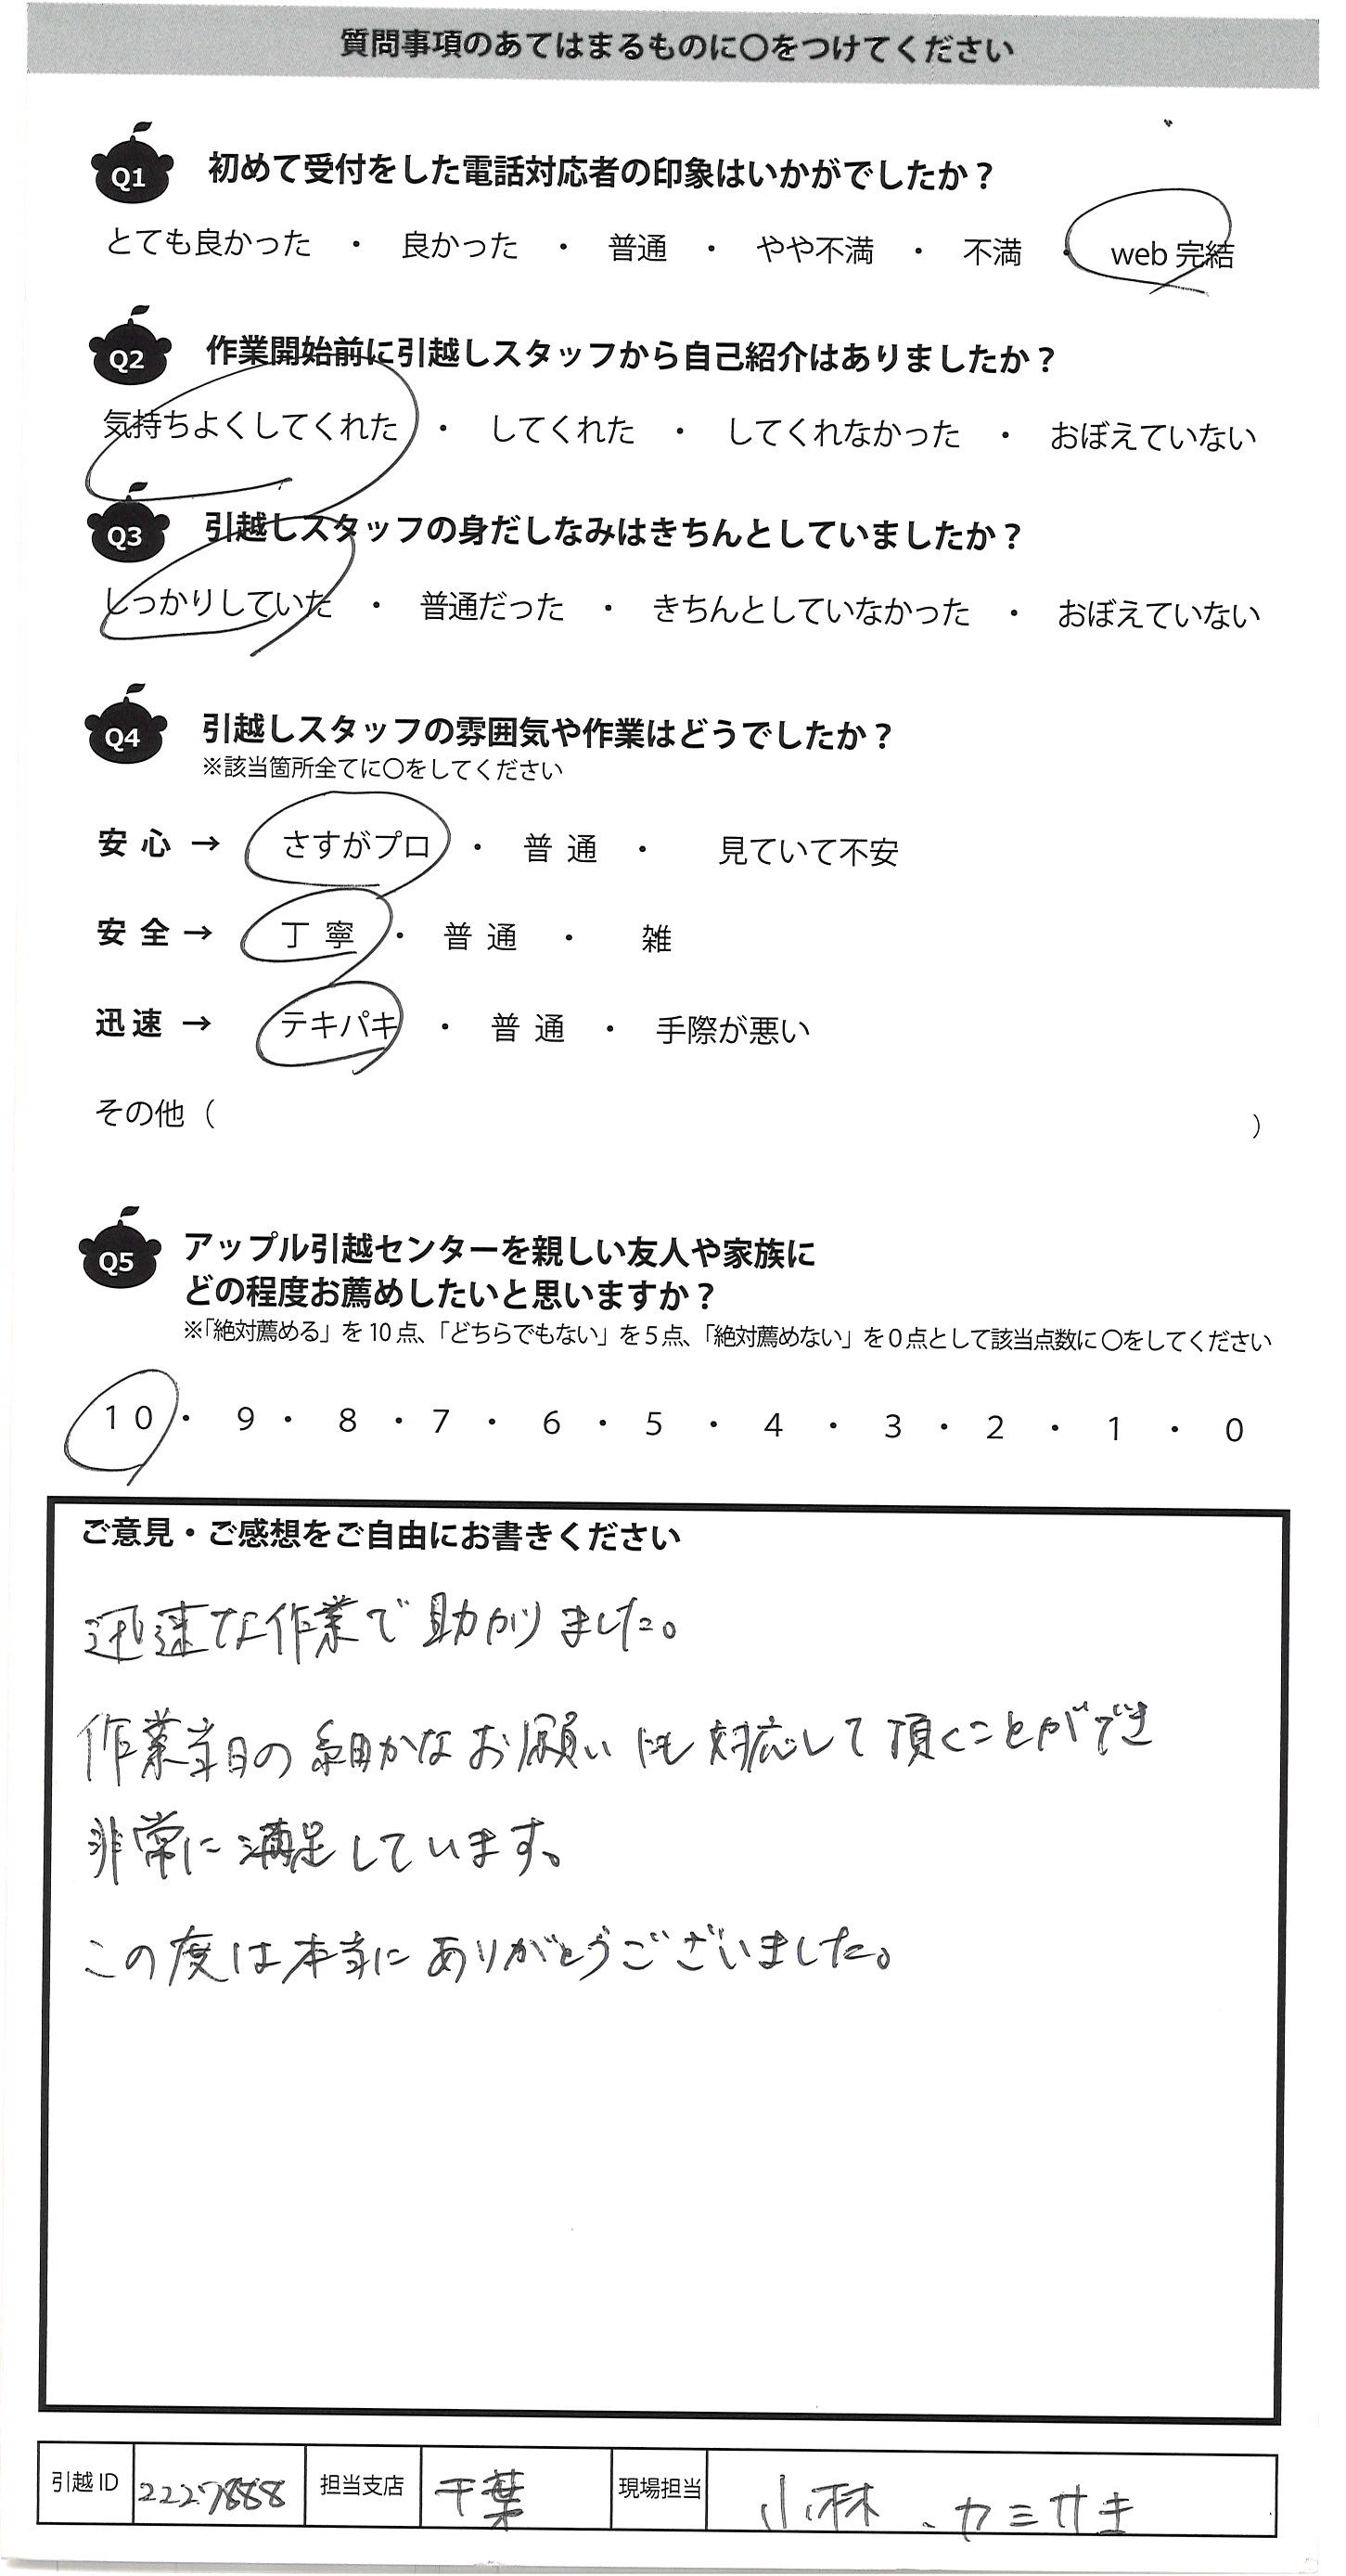 質問事項のあてはまるものに〇をつけてください
Q1 初めて受付をした電話対応者の印象はいかがでしたか？
とても良かった ・ 良かった ・ 普通 ・ やや不満 ・ 不満 ・ web 完結
Q2 作業開始前に引越しスタッフから自己紹介はありましたか？
気持ちよくしてくれた ・ してくれた ・ してくれなかった ・ おぼえていない
Q3 引越しスタッフの身だしなみはきちんとしていましたか？
しっかりしていた ・ 普通だった ・ きちんとしていなかった ・ おぼえていない
Q4 引越しスタッフの雰囲気や作業はどうでしたか？
※該当箇所全てに〇をしてください
安心 → さすがプロ ・ 普通 ・ 見ていて不安
安全 → 丁寧 ・ 普通 ・ 雑
迅速 → テキパキ ・ 普通 ・ 手際が悪い
その他（ ）
Q5 アップル引越センターを親しい友人や家族に
どの程度お薦めしたいと思いますか？
※「絶対薦める」を10点、「どちらでもない」を5点、「絶対薦めない」を0点として該当点数に〇をしてください
10 ・ 9 ・ 8 ・ 7 ・ 6 ・ 5 ・ 4 ・ 3 ・ 2 ・ 1 ・ 0
ご意見・ご感想をご自由にお書きください
迅速な作業で助かりました。
作業当日の細かなお願いにも対応して頂くことができ
非常に満足しています。
この度は本当にありがとうございました。
引越ID 2227888 担当支店 千葉 現場担当 小林、カミサキ